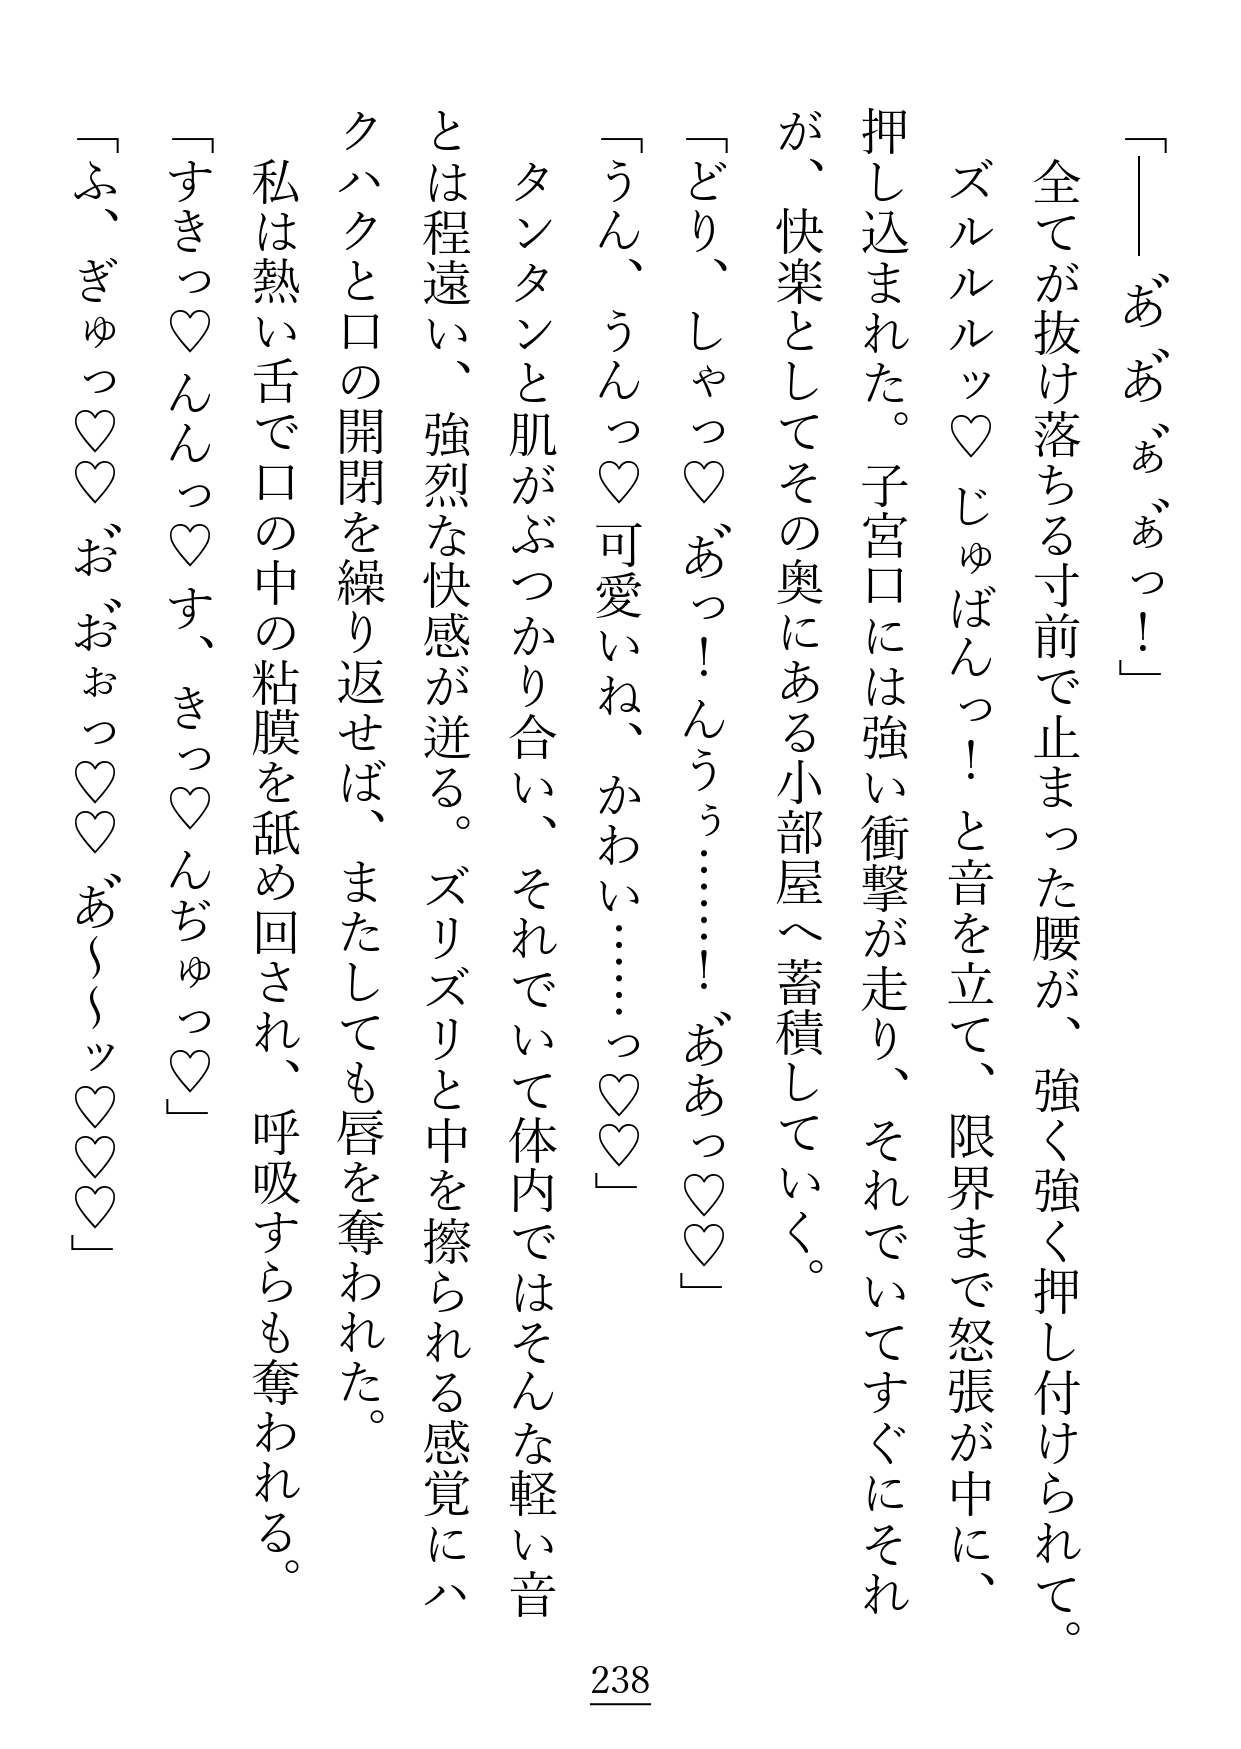 「――あ゛あ゛ぁ゛ぁ゛っ！」
　全てが抜け落ちる寸前で止まった腰が、強く強く押し付けられて。
　ズルルルッ♡じゅばんっ！と音を立て、限界まで怒張が中に、
押し込まれた。子宮口には強い衝撃が走り、それでいてすぐにそれ
が、快楽としてその奥にある小部屋へ蓄積していく。
「どり、しゃっ♡あ゛っ！んうぅ……！あ゛あっ♡♡」
「うん、うんっ♡可愛いね、かわい……っ♡♡」
　タンタンと肌がぶつかり合い、それでいて体内ではそんな軽い音
とは程遠い、強烈な快感が迸る。ズリズリと中を擦られる感覚にハ
クハクと口の開閉を繰り返せば、またしても唇を奪われた。
　私は熱い舌で口の中の粘膜を舐め回され、呼吸すらも奪われる。
「すきっ♡んんっ♡す、きっ♡んぢゅっ♡」
「ふ、ぎゅっ♡♡お゛お゛ぉっ♡♡あ゛～～ッ♡♡♡」
238